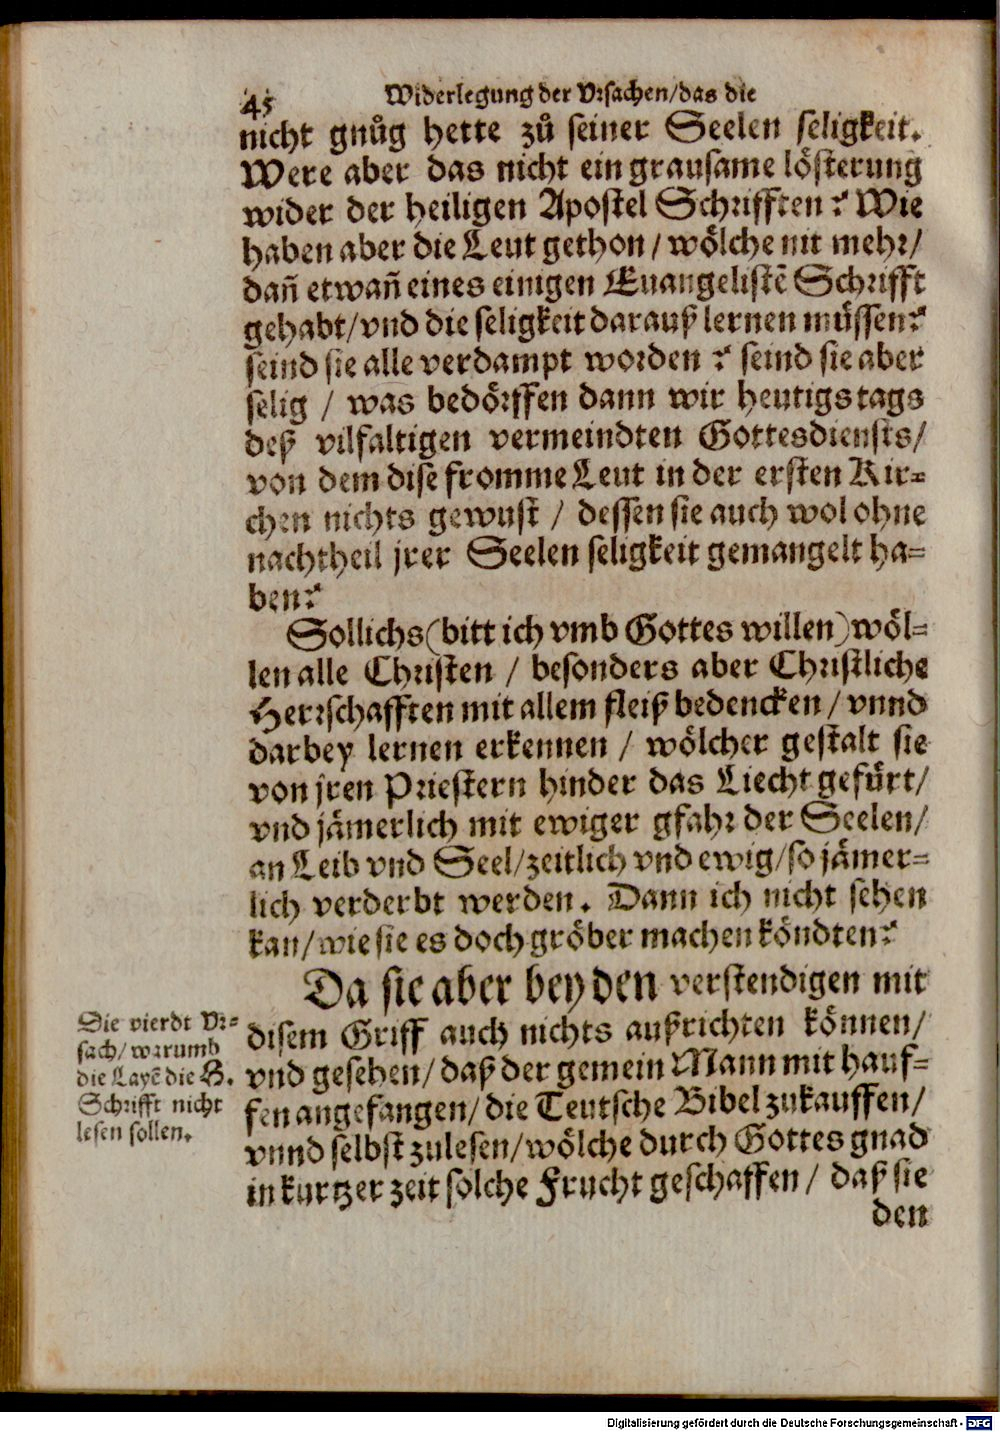 45
Widerlegung der Vrsachen/das die
nicht gnůg hette zů seiner Seelen seligkeit.
Were aber das nicht ein grausame lösterung
wider der heiligen Apostel Schrifften? Wie
haben aber die Leut gethon/wölche nit mehr/
dañ etwañ eines einigen Euangelistẽ Schrifft
gehabt/vnd die seligkeit darauß lernen müssen?
seind sie alle verdampt worden? seind sie aber
selig / was bedörffen dann wir heutigs tags
deß vilfaltigen vermeindten Gottesdiensts/
von dem dise fromme Leut in der ersten Kir-
chen nichts gewust / dessen sie auch wol ohne
nachtheil jrer Seelen seligkeit gemangelt ha-
ben?
Sollichs(bitt ich vmb Gottes willen)wöl-
len alle Christen / besonders aber Christliche
Herrschafften mit allem fleiß bedencken / vnnd
darbey lernen erkennen / wölcher gestalt sie
von jren Priestern hinder das Liecht gefürt/
vnd jämerlich mit ewiger gfahr der Seelen/
an Leib vnd Seel/zeitlich vnd ewig/so jämer-
lich verderbt werden. Dann ich nicht sehen
kan/wie sie es doch gröber machen köndten?
Da sie aber bey den verstendigen mit
disem Griff auch nichts außrichten können/
vnd gesehen/daß der gemein Mann mit hauf-
fen angefangen/die Teutsche Bibel zukauffen/
vnnd selbst zulesen/wölche durch Gottes gnad
in kurtzer zeit solche Frucht geschaffen / daß sie
den
Die vierdt Vr-
sach/warumb
die Layẽ die H.
Schrifft nicht
lesen sollen.
Digitalisierung gefördert durch die Deutsche Forschungsgemeinschaft - DFG